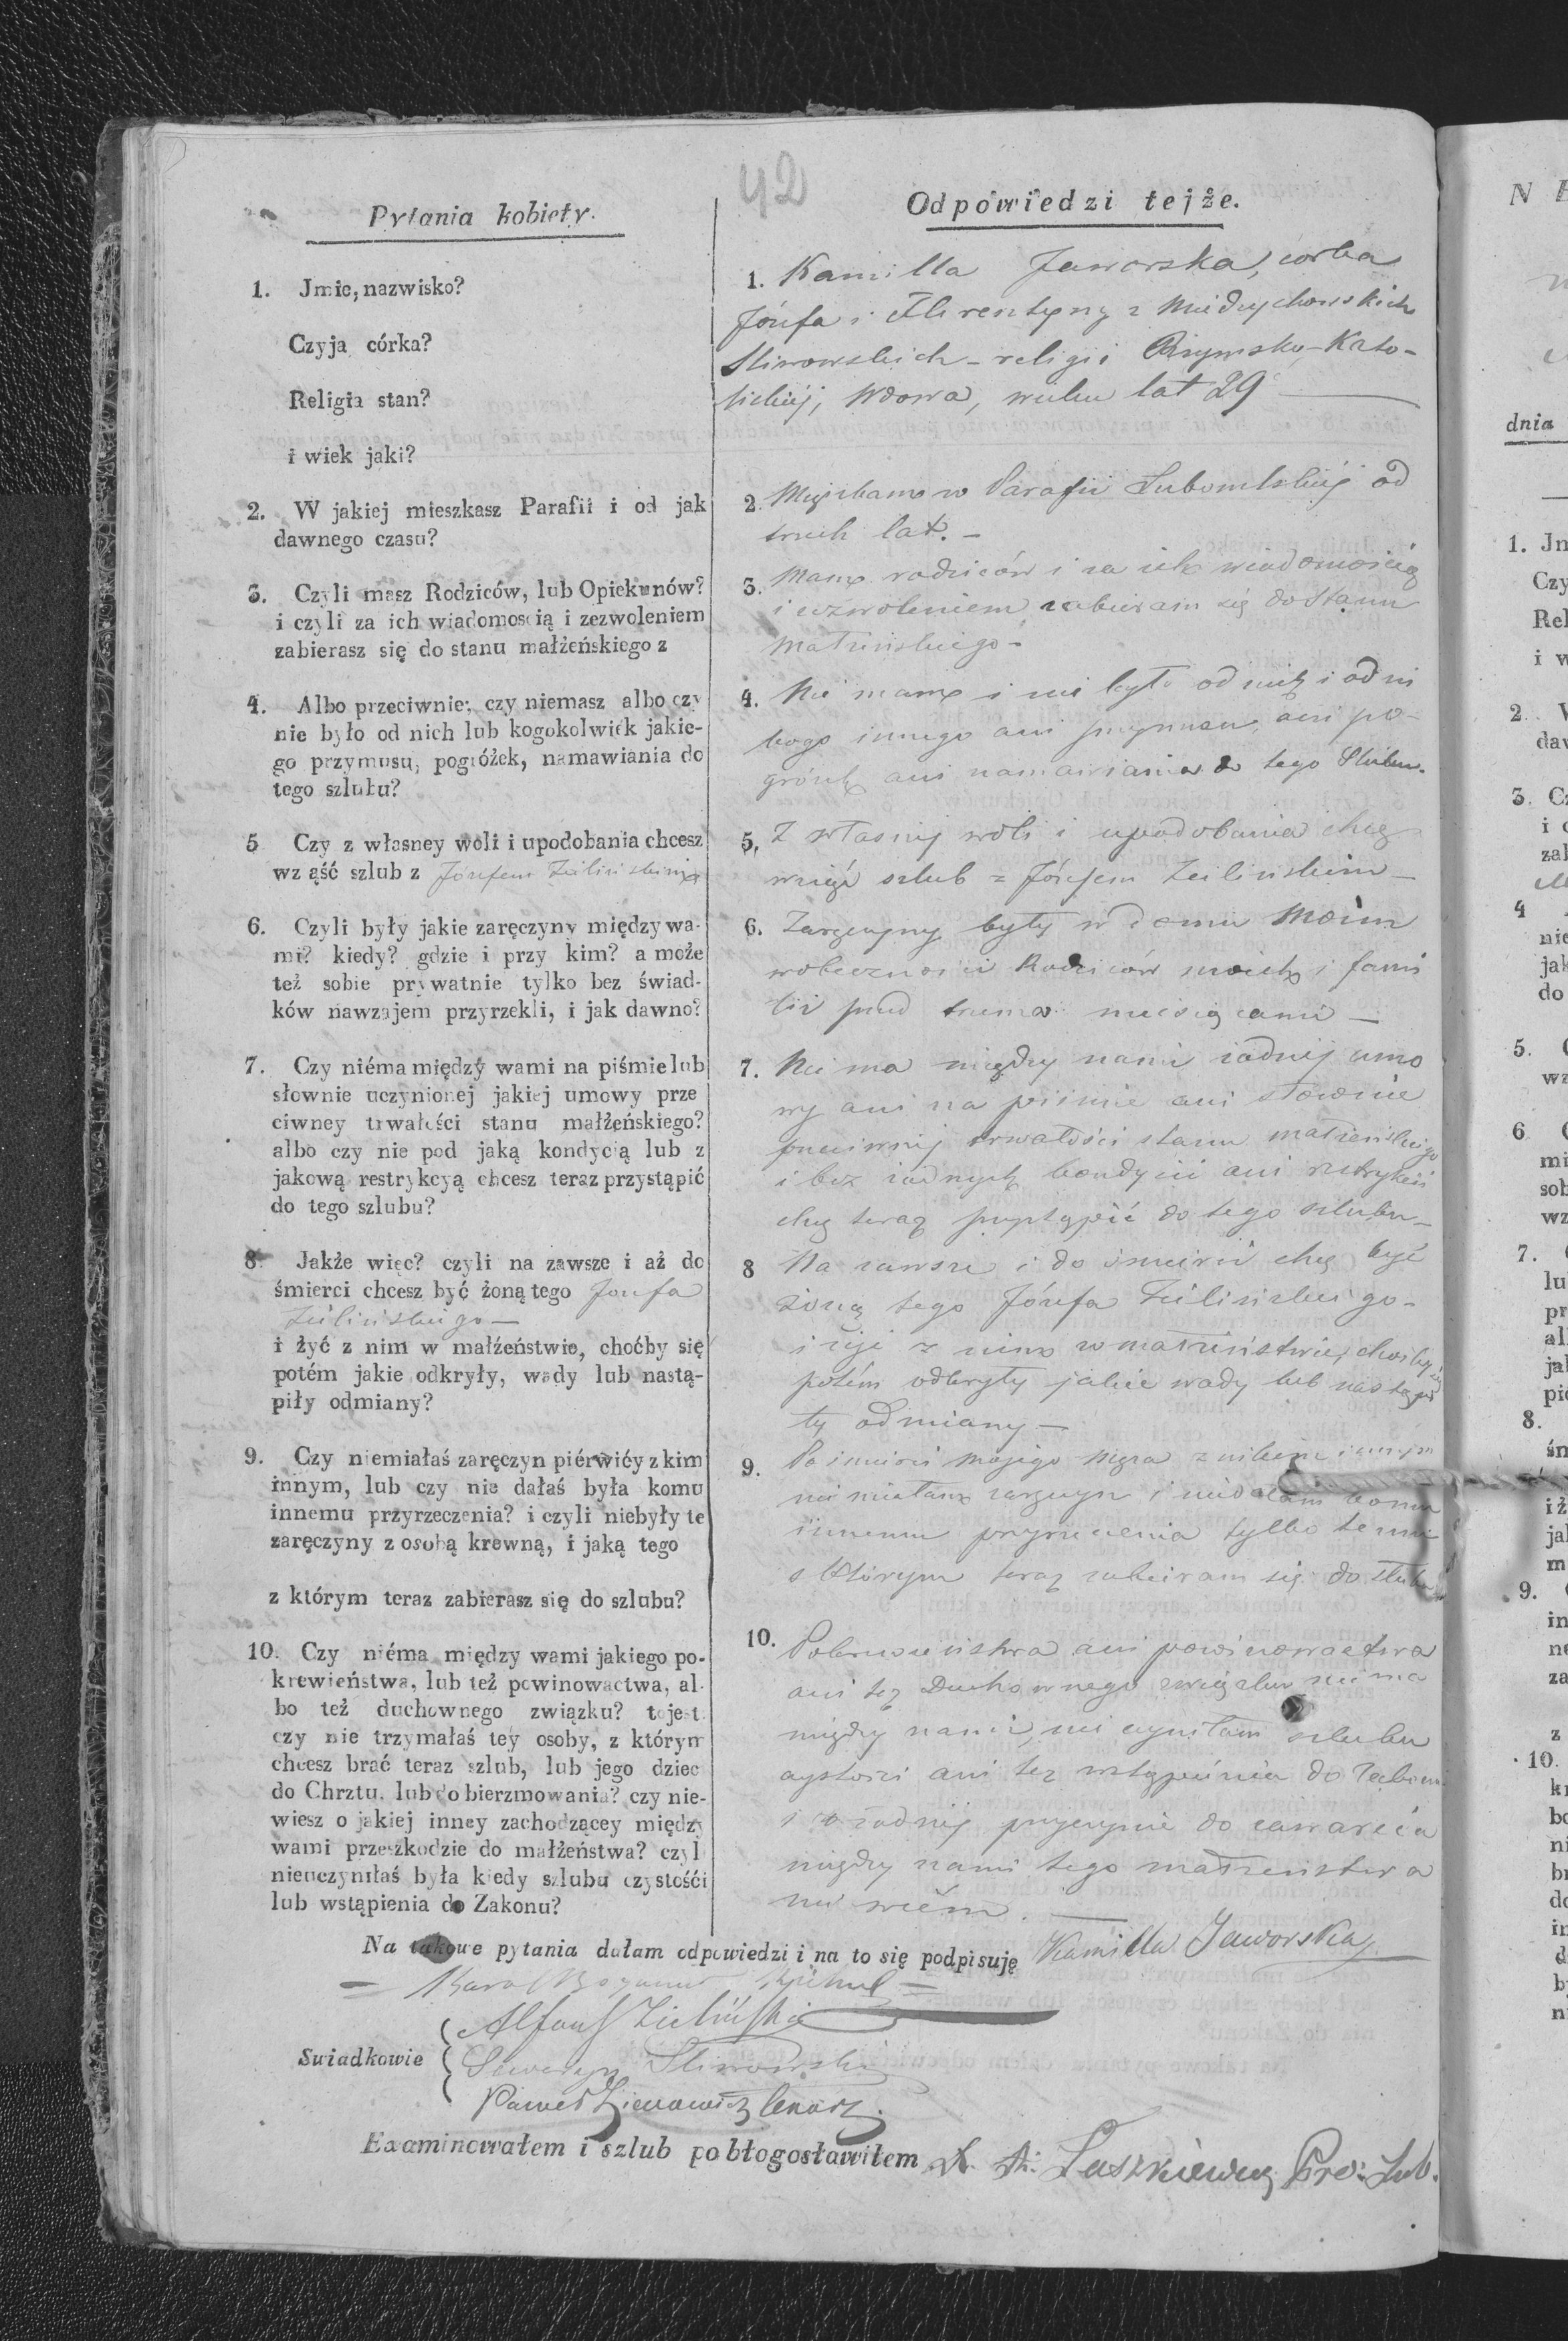 42
Pytania kobiety.
1. Jmie, nazwisko?
Czyja córka?
Religia stan?
i wiek jaki?
2. W jakiej mieszkasz Parafii i od jak
dawnego czasu?
3. Czyli masz Rodziców, lub Opiekunów?
i czyli za ich wiadomoscią i zezwoleniem
zabierasz się do stanu małżeńskiego z
4. Albo przeciwnie: czy niemasz albo czy
nie było od nich lub kogokolwiek jakie-
go przymusu, pogróżek, namawiania do
tego szlubu?
5 Czy z własney woli i upodobania chcesz
wziąść szlub z Józefem Zielińskim
6. Czyli były jakie zaręczyny między wa-
mi? kiedy? gdzie i przy kim? a może
też sobie prywatnie tylko bez świad-
ków nawzajem przyrzekli, i jak dawno?
7. Czy niéma między wami na piśmie lub
słownie uczynionej jakiej umowy prze
ciwney trwałości stanu małżeńskiego?
albo czy nie pod jaką kondycią lub z
jakową restrykcyą chcesz teraz przystąpić
do tego szlubu?
8. Jakże więc? czyli na zawsze i aż do
śmierci chcesz być żoną tego Józefa
Zielińskiego —
i żyć z nim w małżeństwie, choćby się
potém jakie odkryły, wady lub nastą-
piły odmiany?
9. Czy niemiałaś zaręczyn piérwiéy z kim
innym, lub czy nie dałaś była komu
innemu przyrzeczenia? i czyli niebyły te
zaręczyny z osobą krewną, i jaką tego
z którym teraz zabierasz się do szlubu?
10. Czy niéma między wami jakiego po-
krewieństwa, lub też powinowactwa, al-
bo też duchownego związku? to jest
czy nie trzymałaś tey osoby, z którym
chcesz brać teraz szlub, lub jego dziec
do Chrztu, lub do bierzmowania? czy nie-
wiesz o jakiej inney zachodzącey między
wami przeszkodzie do małżeństwa? czyl
nieuczyniłaś była kiedy szlubu czystośći
lub wstąpienia do Zakonu?
Odpowiedzi tejże.
1. Kamilla Jaworska, corka
Józefa i Florentyny z
Sliwowskich – religii Rzymsko-Kato-
lickiéj, Wdowa, wieku lat 29 —
2. Mięszkam w Parafii Lubomlskiéj od
trzech lat. –
3. Mam rodziców i za ich wiadomością
i zezwoleniem zabieram się do Stanu
małżeńskiego –
4. Nie mam i nie było od nich i od ni
kogo innego ani przymusu, ani po-
gróżek ani namawiania do tego Slubu.
5. Z własnéj woli i upodobania chcę
wziąść szlub z Józefem Zielińskim –
6. Zaręczyny były w domu Moim
w obecznosci Rodziców moich i fami
lii przed trzema miesiącami –
7. Nie ma między nami żadnéj umo
wy ani na piśmie ani słownie
przeciwnéj trwałości stanu małżeńskiego
i bez żadnych kondycii ani restrykcii
chcę teraz przystąpić do tego szlubu –
8 Na zawsze i do śmierci chcę być
żoną tego Józefa Zielińskiego –
i żyć z nim w małżeństwie, chociażby
potém odkryły jakie wady lub nastąpi
ły odmiany –
9. Po śmierci mojego męża z nikim innym
nie miałam zaręczyn i niedałam komu
innemu przyrzeczenia tylko temu
z którym teraz zabieram się do slubu
10. Pokrewieństwa ani powinowactwa
ani też Duchownego związku nie ma
między nami, nie czyniłam szlubu
czystości ani też wstąpienia do Zakonu
i o żadnéj przyczynie do zawarcia
między nami tego małżeństwa
nie wiém. —
Na takowe pytania dałam odpowiedzi i na to się podpisuję Kamilla Jaworska
Karol
Swiadkowie
Alfons Zieliński
Seweryn Sliwowski
Paweł
Examinowałem i szlub pobłogosławiłem X. A. Laszkiewicz Pro: Lub.
N
dnia
1. Jn
Czy
Rel
i w
2. W
daw
3. Cz
i c
zal
4
nie
jak
do
5. C
wz
6 C
mi
sob
wz
7. C
lu
pr
al
jak
pić
8.
śm
i ż
jak
m
9. C
in
ne
za
z
10.
kr
bo
ni
br
do
in
d
b
n